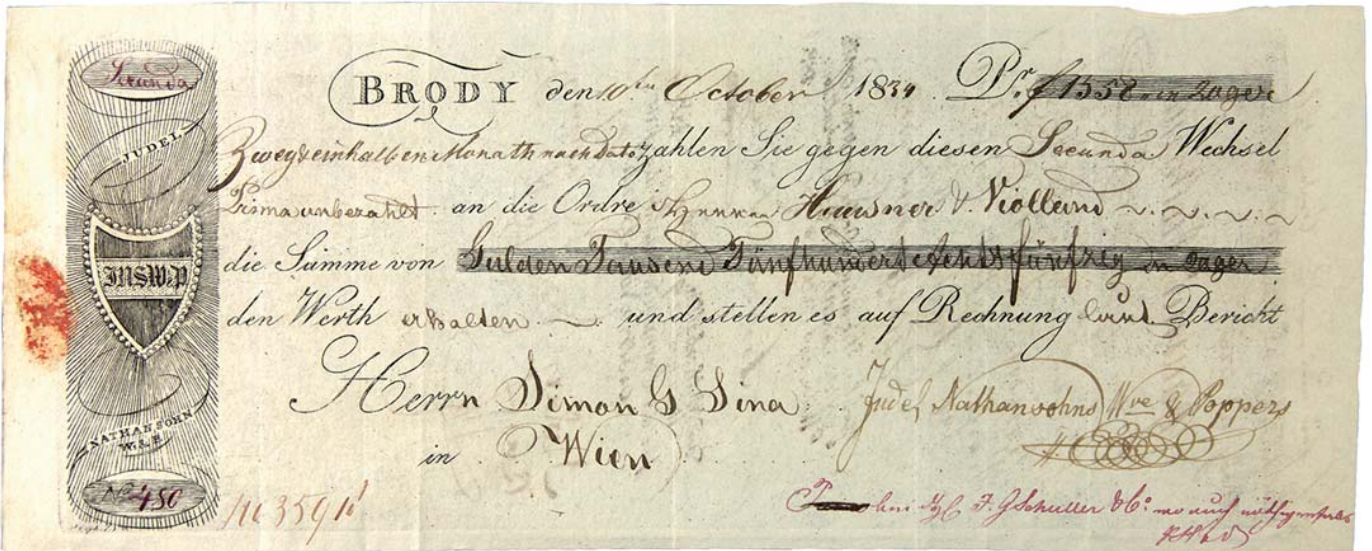 Secunda
JUDEL
JNSW&P
NATHANSOHN
W. & P.
No 480
BRODY den 10ten October 1834. Pr f 1558 in 20ger
Zwey & einhalben Monath nach dato zahlen Sie gegen diesen Secunda Wechsel
Prima unbezahlt an die Ordre Herren Hausner & Violland
die Summe von Gulden Tausend Fünfhundert Acht & fünfzig in 20ger
den Werth erhalten und stellen es auf Rechnung laut Bericht
Herrn Simon G Sina
in Wien
Judel Nathansohns Wwe & Poppers
3591
bei J. G. Schuller & Co: wo auch nöthigenfalls